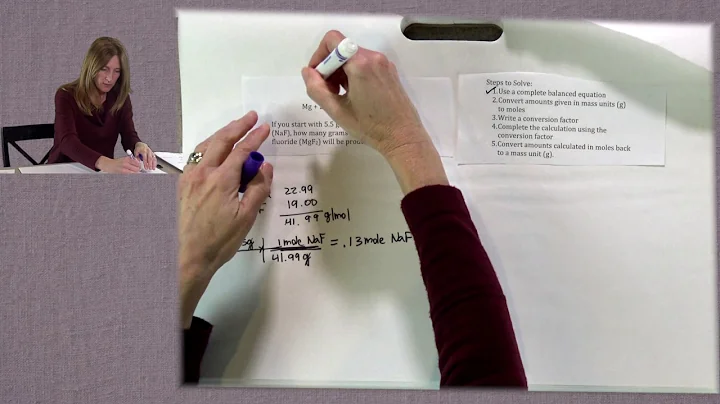 Mg +
If you start with 5.5 g
(NaF), how many grams
fluoride (MgF₂) will be produ
Steps to Solve:
✓1. Use a complete balanced equation
2. Convert amounts given in mass units (g)
to moles
3. Write a conversion factor
4. Complete the calculation using the
conversion factor
5. Convert amounts calculated in moles back
to a mass unit (g).
22.99
19.00
41.99 g/mol
1 mole NaF = .13 mole NaF
41.99 g